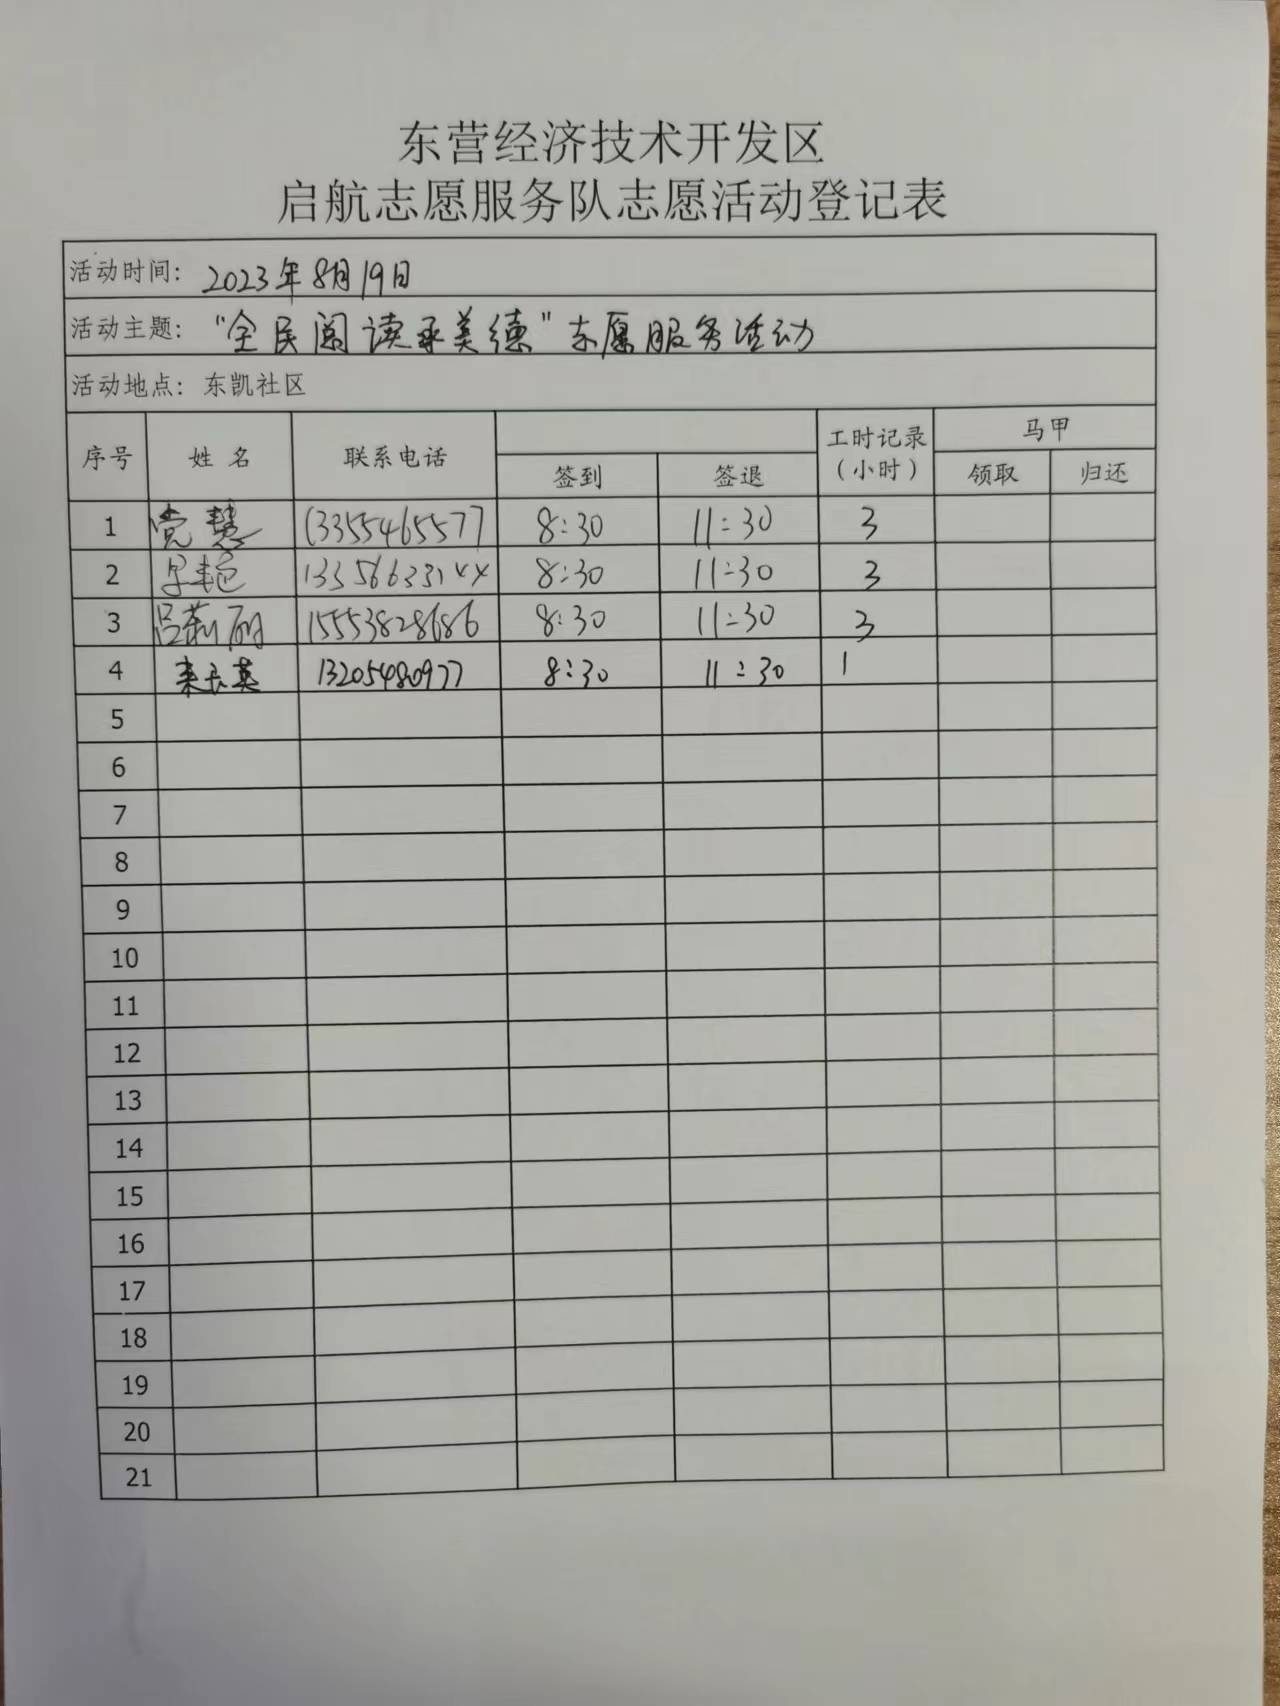 东营经济技术开发区
启航志愿服务队志愿活动登记表
活动时间: 2023年8月19日
活动主题: "全民阅读承美德"志愿服务活动
活动地点: 东凯社区
序号 姓名 联系电话 签到 签退 工时记录（小时） 马甲 领取 归还
1 党慧 13355465577 8:30 11:30 3
2 8:30 11:30 3
3 吕莉丽 15553828686 8:30 11:30 3
4 来长英 13205480977 8:30 11:30 1
5
6
7
8
9
10
11
12
13
14
15
16
17
18
19
20
21